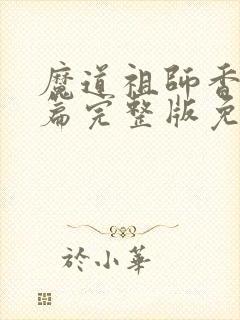 魔道祖師香
篇完整版免
於小華